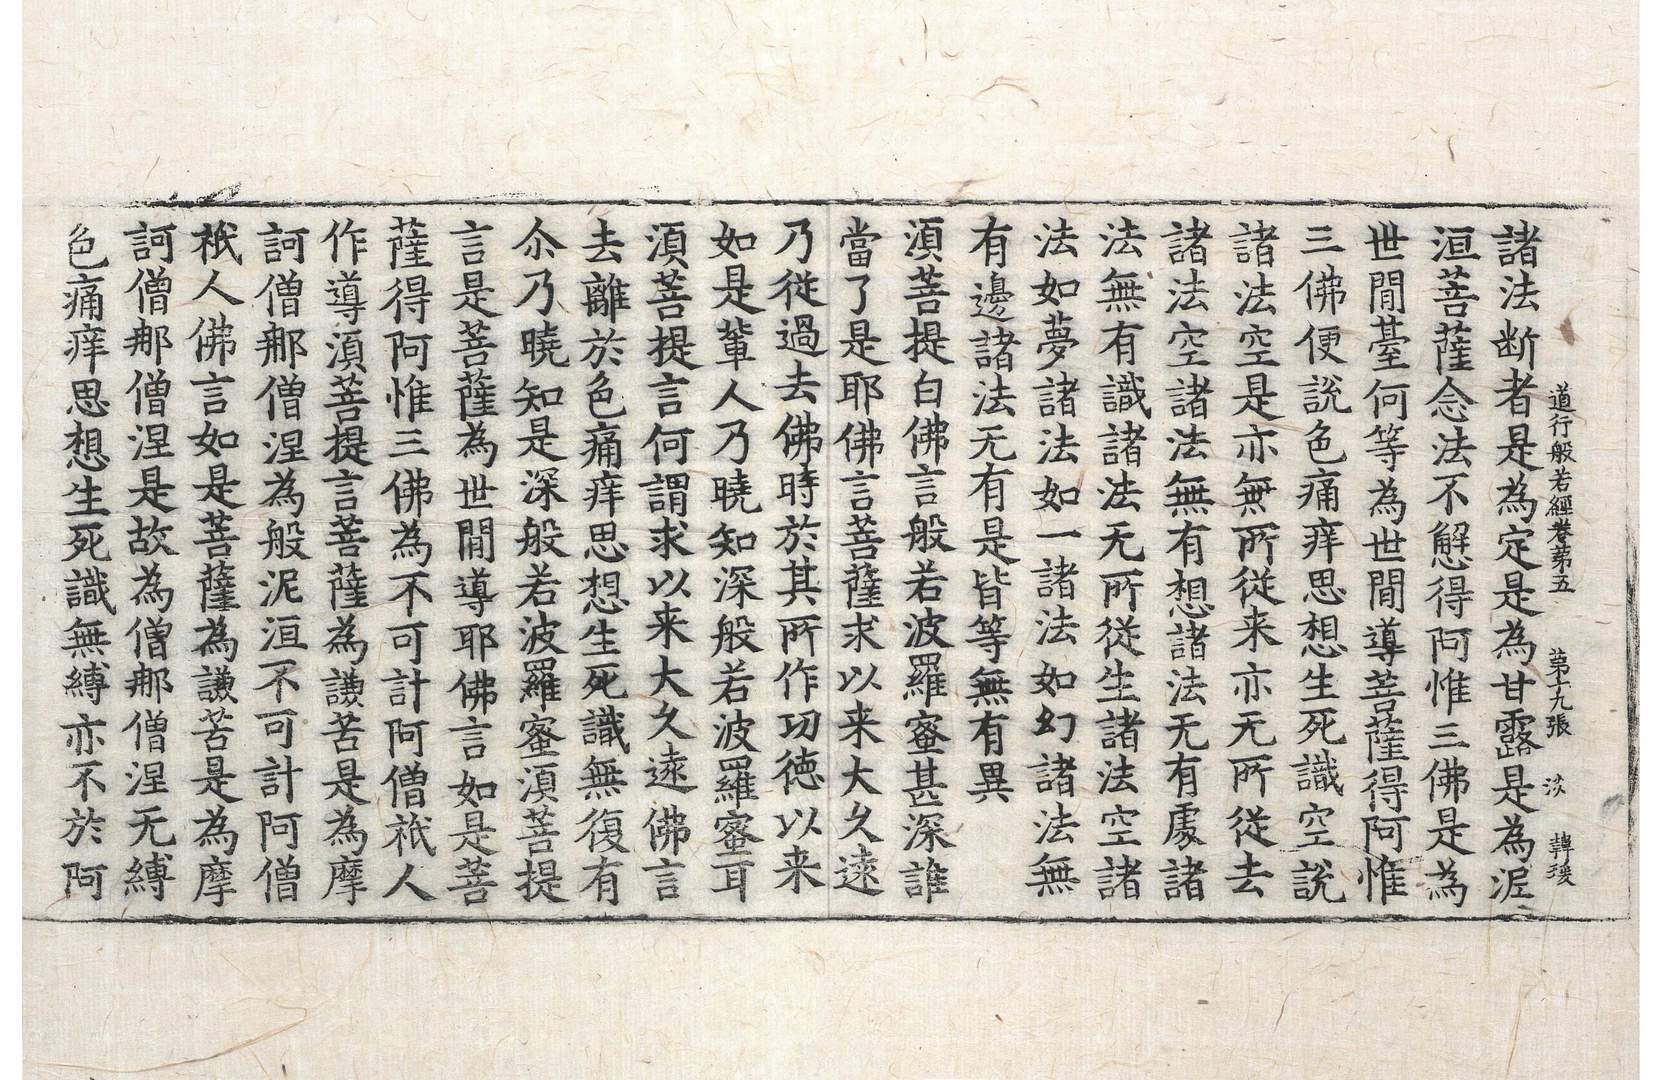 道行般若經卷苐五 苐十九張 淡 韓璦
諸法断者是為定是為甘露是為泥
洹菩薩念法不懈得阿惟三佛是為
世閒臺何等為世閒導菩薩得阿惟
三佛便說色痛痒思想生死識空說
諸法空是亦無所從来亦无所從去
諸法空諸法無有想諸法无有處諸
法無有識諸法无所從生諸法空諸
法如夢諸法如一諸法如幻諸法無
有邊諸法无有是皆等無有異
湏菩提白佛言般若波羅蜜甚深誰
當了是耶佛言菩薩求以来大久遠
乃從過去佛時於其所作功徳以来
如是軰人乃曉知深般若波羅蜜耳
湏菩提言何謂求以来大久遠佛言
去離於色痛痒思想生死識無復有
尒乃曉知是深般若波羅蜜湏菩提
言是菩薩為世閒導耶佛言如是菩
薩得阿惟三佛為不可計阿僧祇人
作導湏菩提言菩薩為謙苦是為摩
訶僧𨚗僧涅為般泥洹不可計阿僧
祇人佛言如是菩薩為謙苦是為摩
訶僧𨚗僧涅是故為僧𨚗僧涅无縛
色痛痒思想生死識無縛亦不於阿